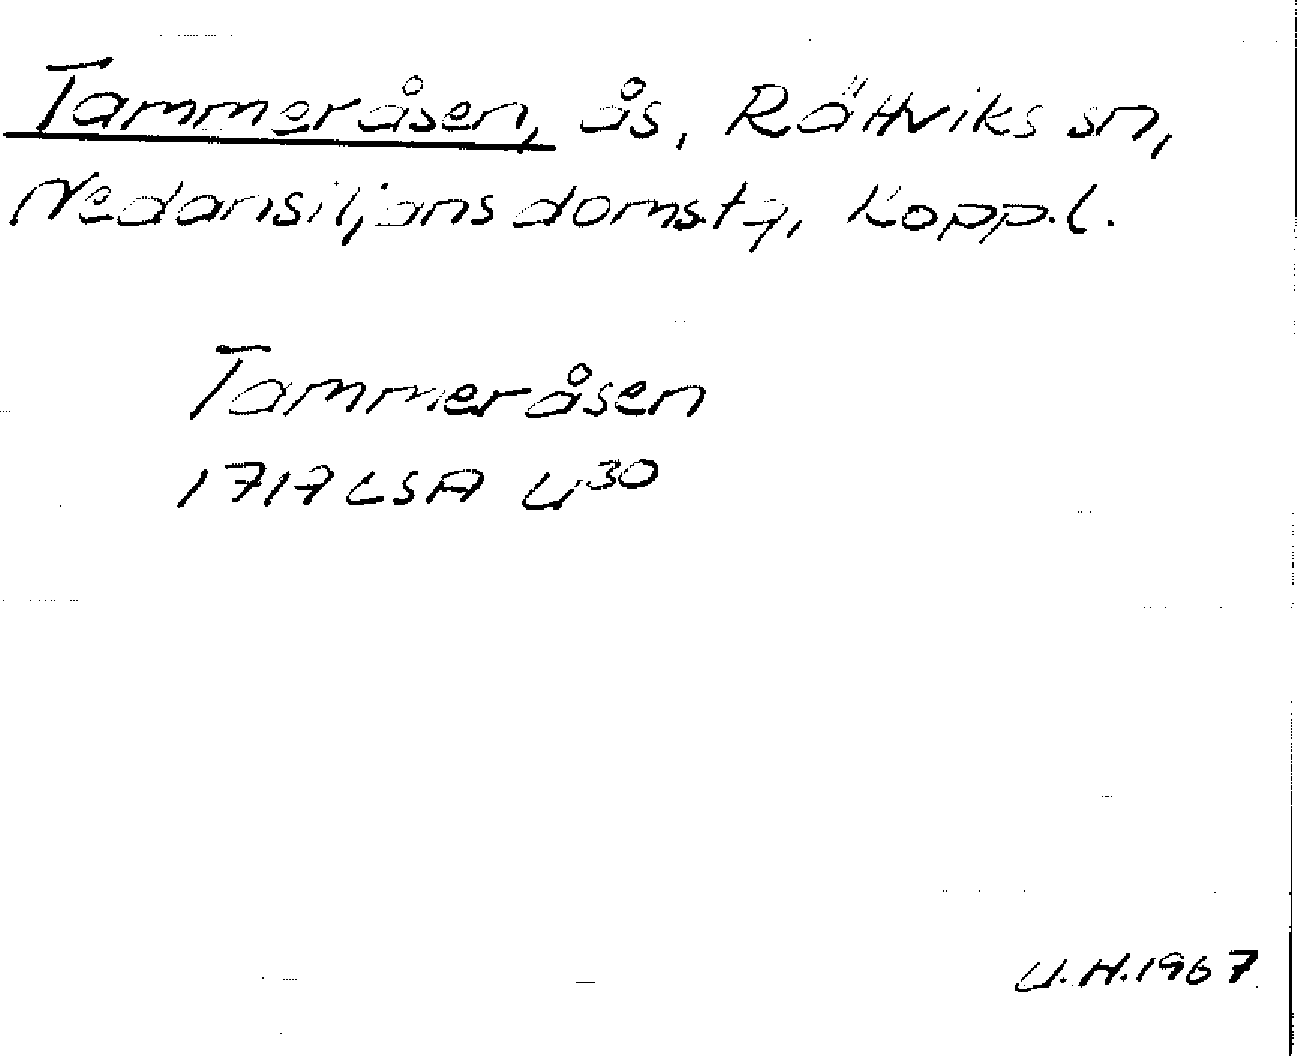 Tammeråsen, ås, Rättviks sn,
Nedansiljans domstg, Kopp.l.
Tammeråsen
1717 LSA U³⁰
U.H.1967